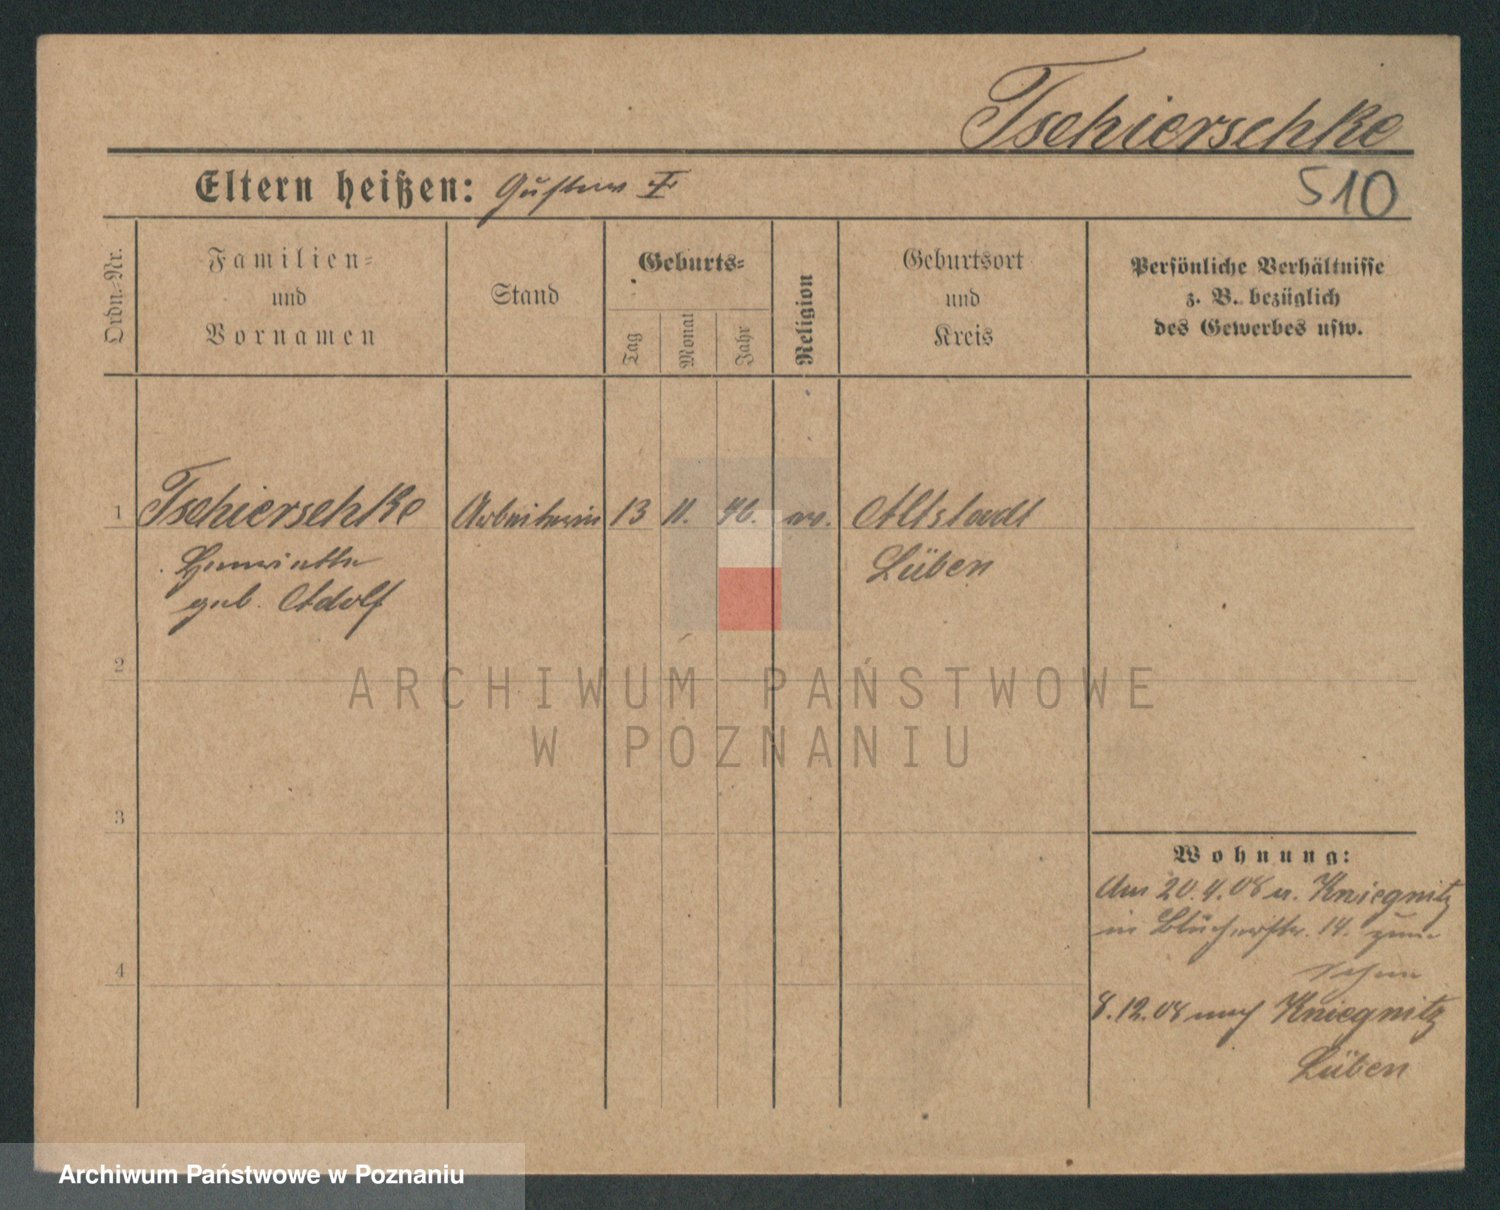 Tschierschke
Eltern heißen: Gustav †
510
Ordn.-Nr.
Familien-
und
Vornamen
Stand
Geburts-
Tag
Monat
Jahr
Religion
Geburtsort
und
Kreis
Persönliche Verhältnisse
z. B. bezüglich
des Gewerbes usw.
1 Tschierschke Arbeiterin 13 11. 46. ev. Altstadt
Henriette Lüben
geb. Adolf
2
ARCHIWUM PAŃSTWOWE
W POZNANIU
3
Wohnung:
Am 20.4.08 v. Kniegnitz
in Blücherstr. 14.
4
8.12.08 nach Kniegnitz
Lüben
Archiwum Państwowe w Poznaniu